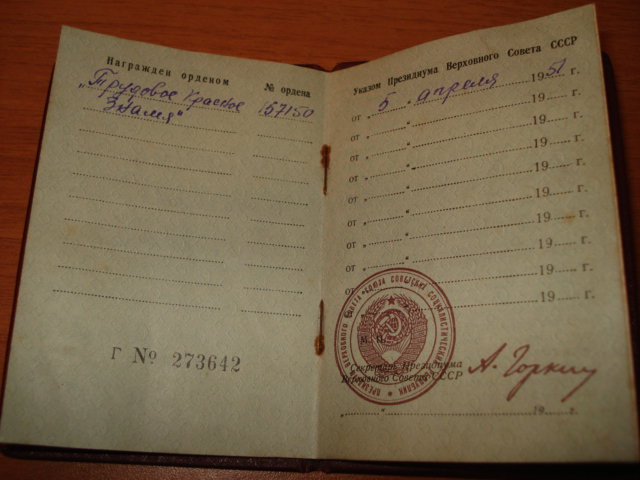 Награжден орденом
№ ордена
„Трудовое Красное
Знамя“
157150
Г № 273642
Указом Президиума Верховного Совета СССР
от „ 5 “ апреля 1951 г.
от „ “ 19 г.
от „ “ 19 г.
от „ “ 19 г.
от „ “ 19 г.
от „ “ 19 г.
от „ “ 19 г.
от „ “ 19 г.
от „ “ 19 г.
М. П.
Секретарь Президиума
Верховного Совета СССР
А. Горкин
„ “ 19 г.
ПРЕЗИДИУМ ВЕРХОВНОГО СОВЕТА СОЮЗА СОВЕТСКИХ СОЦИАЛИСТИЧЕСКИХ РЕСПУБЛИК